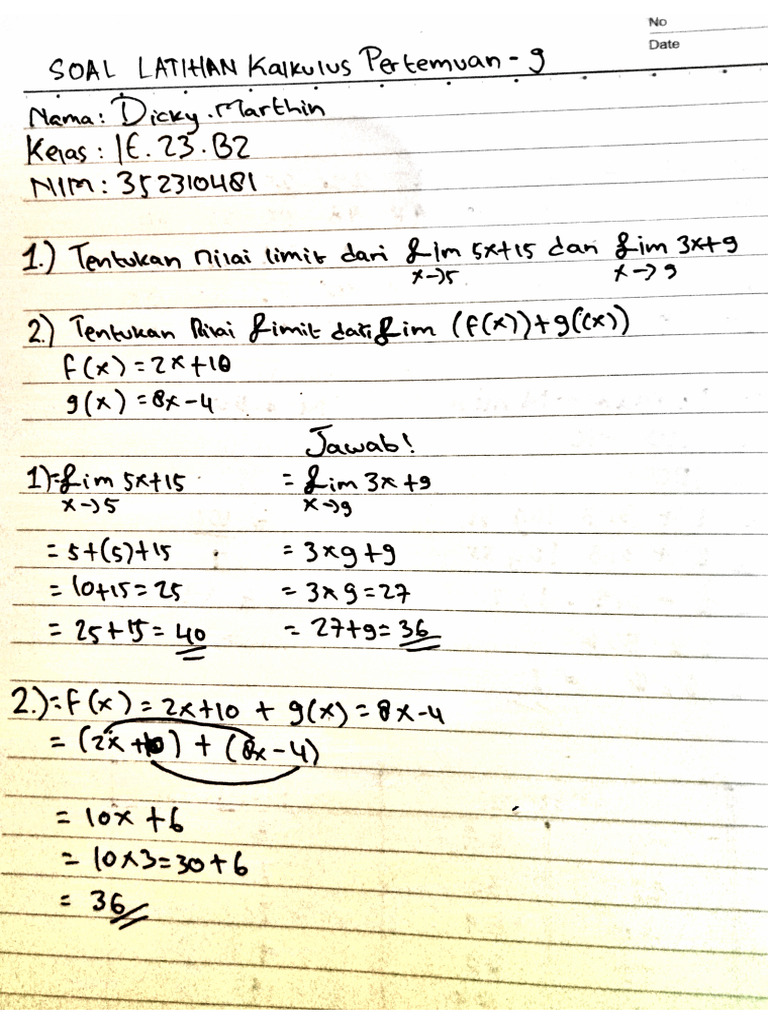 No
Date
SOAL LATIHAN Kalkulus Pertemuan - 9
Nama: Dicky Marthin
Kelas : IE.23.B2
NIM : 352310481
1.) Tentukan nilai limit dari lim 5x+15 dan lim 3x+9
x→5 x→9
2.) Tentukan Nilai Limit dari Lim (f(x))+g((x))
f(x) = 2x+10
g(x) = 8x-4
Jawab!
1)= Lim 5x+15 = Lim 3x+9
x→5 x→9
= 5+(5)+15 = 3x9+9
= 10+15=25 = 3x9=27
= 25+15=40 = 27+9=36
2.)= f(x) = 2x+10 + g(x) = 8x-4
= (2x+10) + (8x-4)
= 10x+6
= 10x3=30+6
= 36